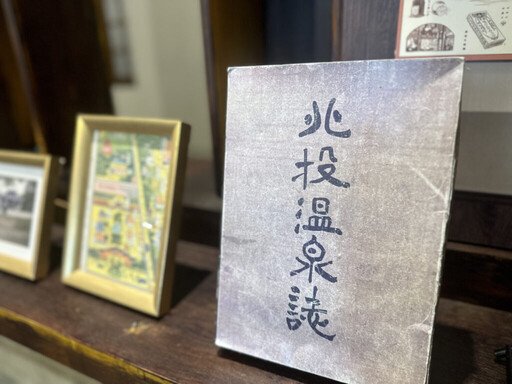 北投温泉誌